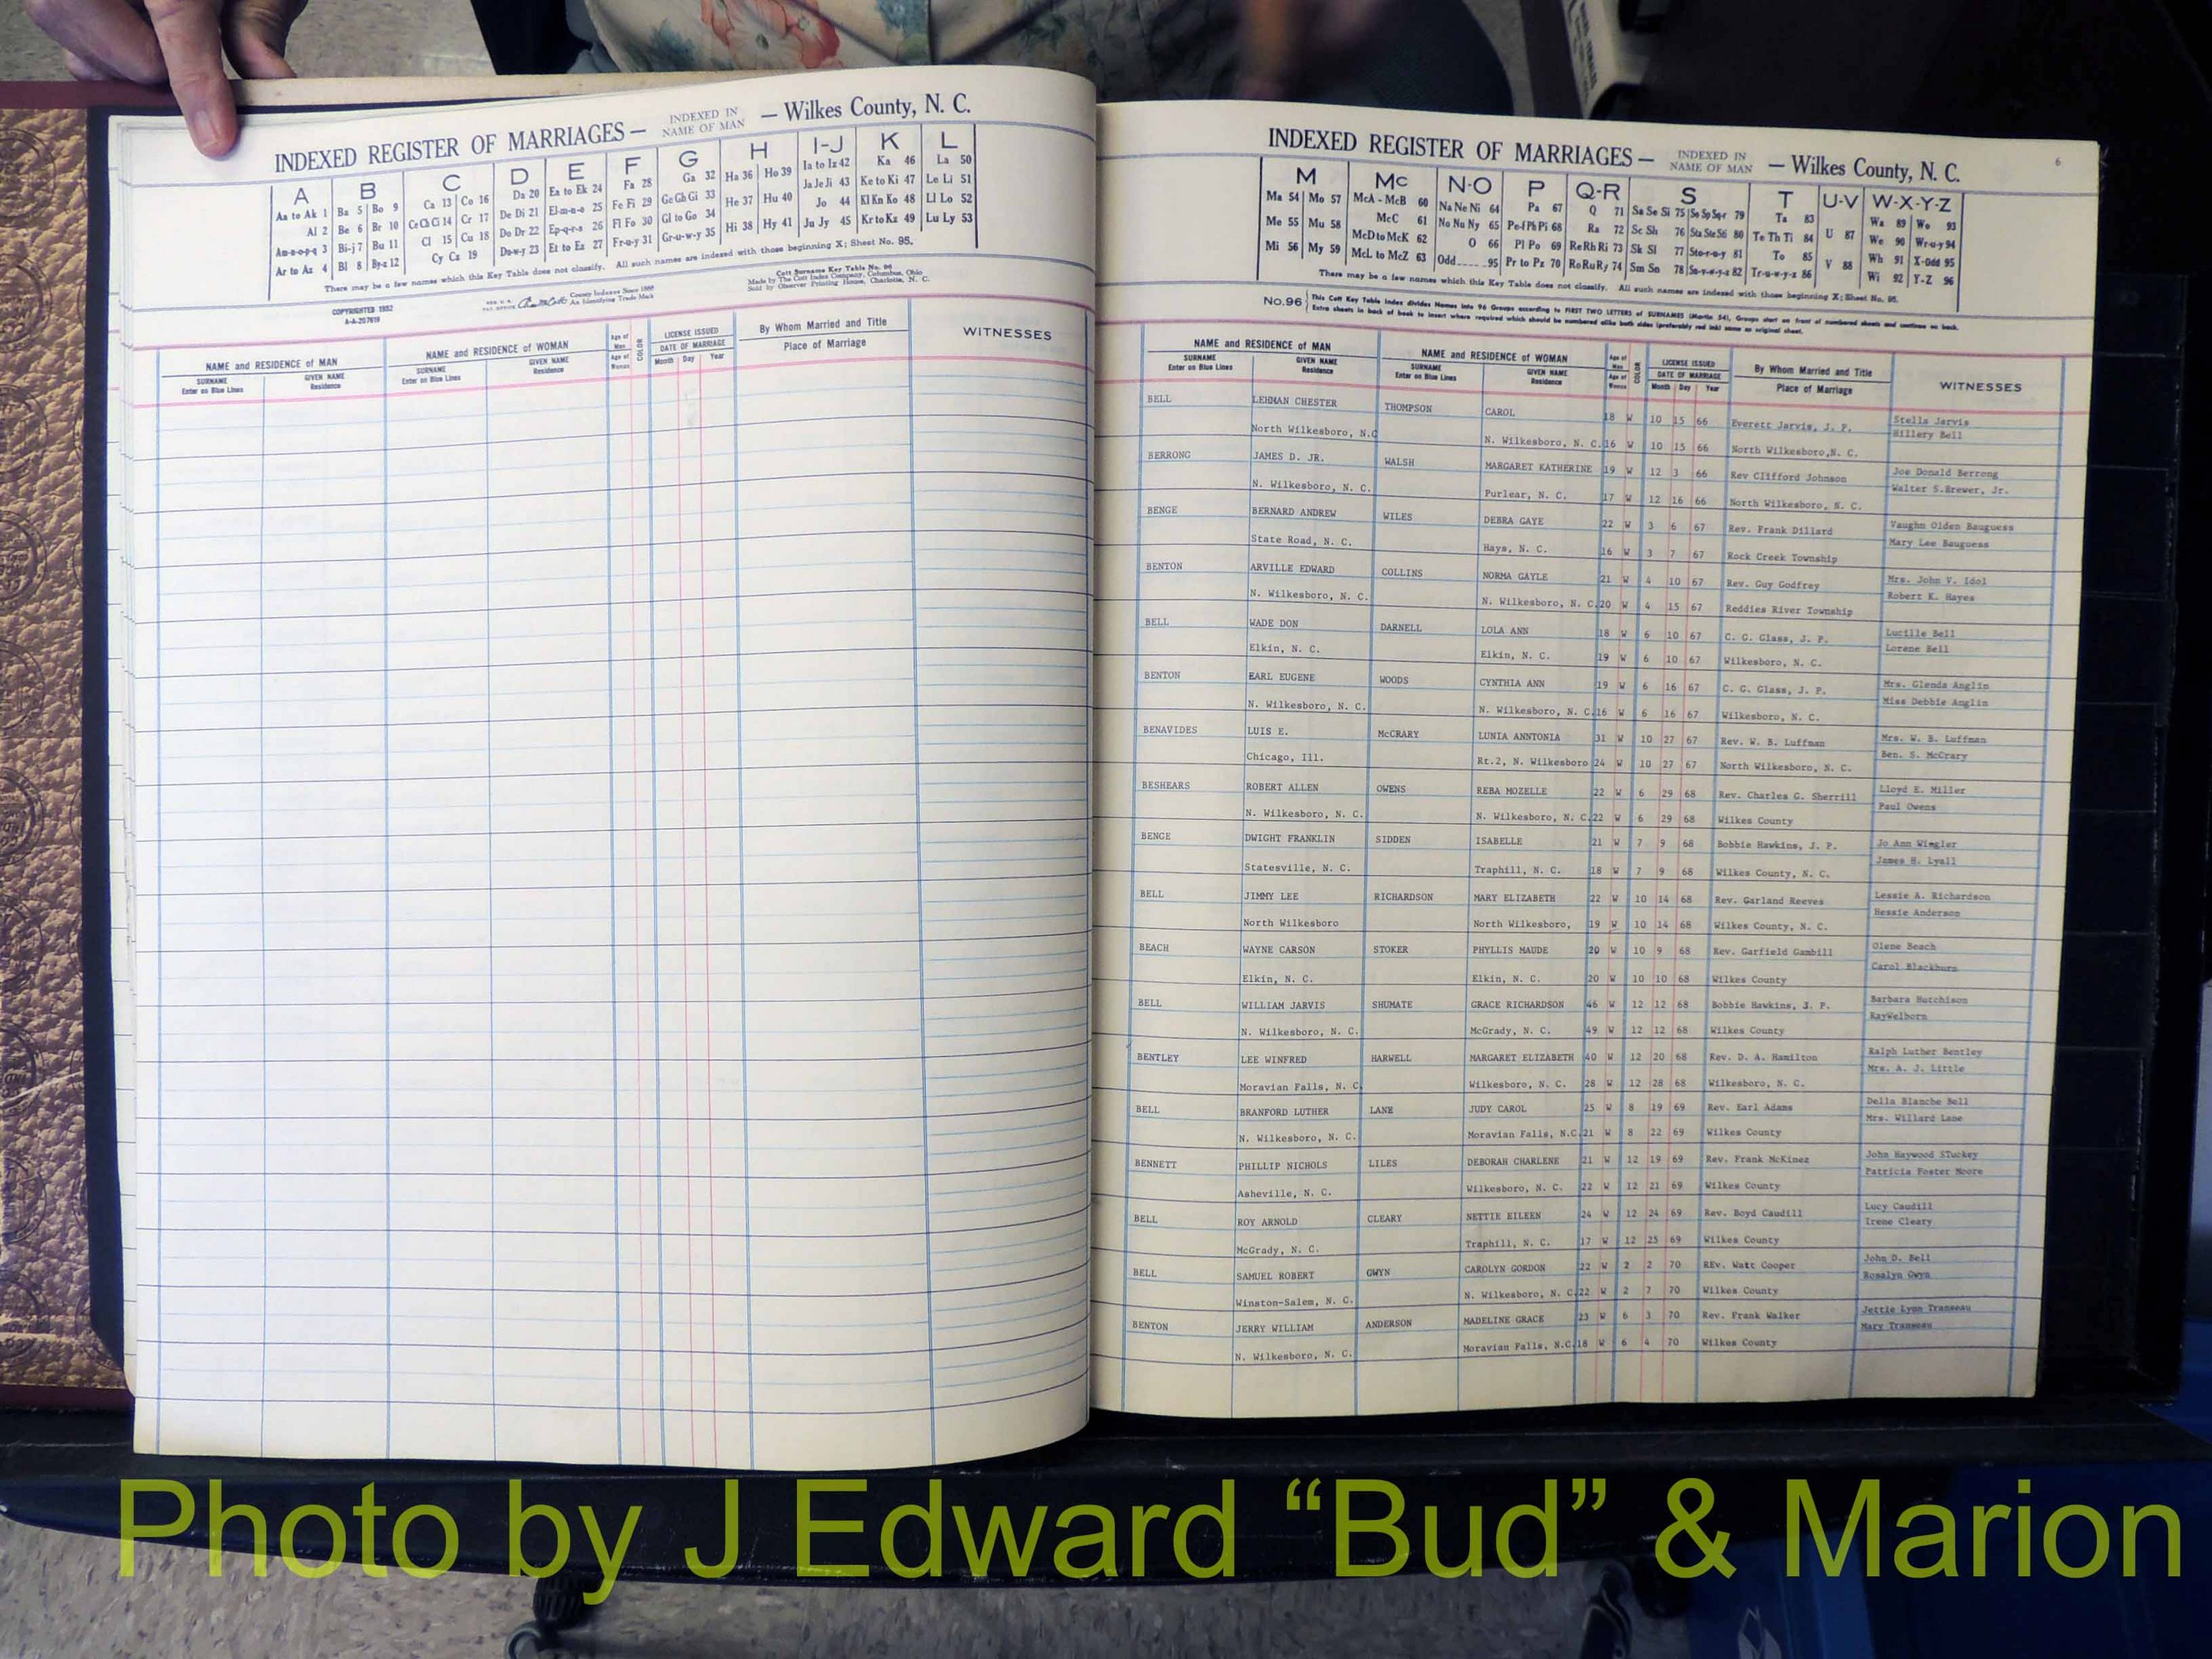 INDEXED REGISTER OF MARRIAGES — INDEXED IN NAME OF MAN — Wilkes County, N. C.
A B C D E F G H I-J K L
Aa to Ak 1 Ba 5 Bo 9 Ca 13 Co 16 Da 20 Ea to Ek 24 Fa 28 Ga 32 Ha 36 Ho 39 Ia to Iz 42 Ka 46 La 50
Al 2 Be 6 Br 10 Ce Ch Ci 14 Cr 17 De Di 21 El-m-n-o 25 Fe Fi 29 Ge Gh Gi 33 He 37 Hu 40 Ja Je Ji 43 Ke to Ki 47 Le Li 51
Am-n-o-p-q 3 Bi-j 7 Bu 11 Cl 15 Cu 18 Do Dr 22 Ep-q-r-s 26 Fl Fo 30 Gl to Go 34 Hi 38 Hy 41 Jo 44 Kl Kn Ko 48 Ll Lo 52
Ar to Az 4 Bl 8 By-z 12 Cy Cz 19 Du-w-y 23 Et to Ez 27 Fr-u-y 31 Gr-u-w-y 35 Ju Jy 45 Kr to Kz 49 Lu Ly 53
There may be a few names which this Key Table does not classify. All such names are indexed with those beginning X; Sheet No. 95.
COPYRIGHTED 1952
A-A-207619
County Indexes Since 1888
An Identifying Trade Mark
Cott Surname Key Table No. 96
Made by The Cott Index Company, Columbus, Ohio
Sold by Observer Printing House, Charlotte, N. C.
NAME and RESIDENCE OF MAN NAME and RESIDENCE OF WOMAN Age of Man Age of Woman COLOR LICENSE ISSUED DATE OF MARRIAGE By Whom Married and Title WITNESSES
SURNAME Enter on Blue Lines GIVEN NAME Residence SURNAME Enter on Blue Lines GIVEN NAME Residence Month Day Year Place of Marriage
INDEXED REGISTER OF MARRIAGES — INDEXED IN NAME OF MAN — Wilkes County, N. C. 6
M Mc N-O P Q-R S T U-V W-X-Y-Z
Ma 54 Mo 57 McA - McB 60 Na Ne Ni 64 Pa 67 Q 71 Sa Se Si 75 So Sp Sq-r 79 Ta 83 U 87 Wa 89 Wo 93
Me 55 Mu 58 McC 61 No Nu Ny 65 Pe-f Ph Pi 68 Ra 72 Sc Sh 76 Sta Ste S6 80 Te Th Ti 84 V 88 We 90 Wr-u-y 94
Mi 56 My 59 McD to McK 62 O 66 Pl Po 69 Re Rh Ri 73 Sk Sl 77 Sto-r-u-y 81 To 85 Wh 91 X-Odd 95
McL to McZ 63 Odd 95 Pr to Pz 70 Ro Ru Ry 74 Sm Sn 78 Su-v-w-y-z 82 Tr-u-w-y-z 86 Wi 92 Y-Z 96
There may be a few names which this Key Table does not classify. All such names are indexed with those beginning X; Sheet No. 95.
No. 96 This Cott Key Table Index divides Names into 96 Groups according to FIRST TWO LETTERS of SURNAMES (Martin 54). Groups start on front of numbered sheets and continue on back.
Extra sheets in back of book to insert where required which should be numbered alike both sides (preferably red ink) same as original sheet.
NAME and RESIDENCE OF MAN NAME and RESIDENCE OF WOMAN Age of Man Age of Woman COLOR LICENSE ISSUED DATE OF MARRIAGE By Whom Married and Title WITNESSES
SURNAME Enter on Blue Lines GIVEN NAME Residence SURNAME Enter on Blue Lines GIVEN NAME Residence Month Day Year Place of Marriage
BELL LEHMAN CHESTER THOMPSON CAROL 18 W 10 15 66 Everett Jarvis, J. P. Stella Jarvis
North Wilkesboro, N.C N. Wilkesboro, N. C. 16 W 10 15 66 North Wilkesboro,N. C. Hillery Bell
BERRONG JAMES D. JR. WALSH MARGARET KATHERINE 19 W 12 3 66 Rev Clifford Johnson Joe Donald Berrong
N. Wilkesboro, N. C. Purlear, N. C. 17 W 12 16 66 North Wilkesboro, N. C. Walter S.Brewer, Jr.
BENGE BERNARD ANDREW WILES DEBRA GAYE 22 W 3 6 67 Rev. Frank Dillard Vaughn Olden Bauguess
State Road, N. C. Hays, N. C. 16 W 3 7 67 Rock Creek Township Mary Lee Bauguess
BENTON ARVILLE EDWARD COLLINS NORMA GAYLE 21 W 4 10 67 Rev. Guy Godfrey Mrs. John V. Idol
N. Wilkesboro, N. C. N. Wilkesboro, N. C. 20 W 4 15 67 Reddies River Township Robert K. Hayes
BELL WADE DON DARNELL LOLA ANN 18 W 6 10 67 C. G. Glass, J. P. Lucille Bell
Elkin, N. C. Elkin, N. C. 19 W 6 10 67 Wilkesboro, N. C. Lorene Bell
BENTON EARL EUGENE WOODS CYNTHIA ANN 19 W 6 16 67 C. G. Glass, J. P. Mrs. Glenda Anglin
N. Wilkesboro, N. C. N. Wilkesboro, N. C. 16 W 6 16 67 Wilkesboro, N. C. Miss Debbie Anglin
BENAVIDES LUIS E. McCRARY LUNIA ANNTONIA 31 W 10 27 67 Rev. W. B. Luffman Mrs. W. B. Luffman
Chicago, Ill. Rt.2, N. Wilkesboro 24 W 10 27 67 North Wilkesboro, N. C. Ben. S. McCrary
BESHEARS ROBERT ALLEN OWENS REBA MOZELLE 22 W 6 29 68 Rev. Charles G. Sherrill Lloyd E. Miller
N. Wilkesboro, N. C. N. Wilkesboro, N. C. 22 W 6 29 68 Wilkes County Paul Owens
BENGE DWIGHT FRANKLIN SIDDEN ISABELLE 21 W 7 9 68 Bobbie Hawkins, J. P. Jo Ann Wingler
Statesville, N. C. Traphill, N. C. 18 W 7 9 68 Wilkes County, N. C. James H. Lyall
BELL JIMMY LEE RICHARDSON MARY ELIZABETH 22 W 10 14 68 Rev. Garland Reeves Lessie A. Richardson
North Wilkesboro North Wilkesboro, 19 W 10 14 68 Wilkes County, N. C. Hessie Anderson
BEACH WAYNE CARSON STOKER PHYLLIS MAUDE 20 W 10 9 68 Rev. Garfield Gambill Olene Beach
Elkin, N. C. Elkin, N. C. 20 W 10 10 68 Wilkes County Carol Blackburn
BELL WILLIAM JARVIS SHUMATE GRACE RICHARDSON 46 W 12 12 68 Bobbie Hawkins, J. P. Barbara Hutchison
N. Wilkesboro, N. C. McGrady, N. C. 49 W 12 12 68 Wilkes County RayWelborn
BENTLEY LEE WINFRED HARWELL MARGARET ELIZABETH 40 W 12 20 68 Rev. D. A. Hamilton Ralph Luther Bentley
Moravian Falls, N. C Wilkesboro, N. C. 28 W 12 28 68 Wilkesboro, N. C. Mrs. A. J. Little
BELL BRANFORD LUTHER LANE JUDY CAROL 25 W 8 19 69 Rev. Earl Adams Della Blanche Bell
N. Wilkesboro, N. C. Moravian Falls, N.C. 21 W 8 22 69 Wilkes County Mrs. Willard Lane
BENNETT PHILLIP NICHOLS LILES DEBORAH CHARLENE 21 W 12 19 69 Rev. Frank McKinez John Haywood STuckey
Asheville, N. C. Wilkesboro, N. C. 22 W 12 21 69 Wilkes County Patricia Foster Moore
BELL ROY ARNOLD CLEARY NETTIE EILEEN 24 W 12 24 69 Rev. Boyd Caudill Lucy Caudill
McGrady, N. C. Traphill, N. C. 17 W 12 25 69 Wilkes County Irene Cleary
BELL SAMUEL ROBERT GWYN CAROLYN GORDON 22 W 2 2 70 REv. Watt Cooper John D. Bell
Winston-Salem, N. C. N. Wilkesboro, N. C. 22 W 2 7 70 Wilkes County Rosalyn Gwyn
BENTON JERRY WILLIAM ANDERSON MADELINE GRACE 23 W 6 3 70 Rev. Frank Walker Jettie Lynn Transeau
N. Wilkesboro, N. C. Moravian Falls, N.C. 18 W 6 4 70 Wilkes County Mary Transeau
Photo by J Edward “Bud” & Marion